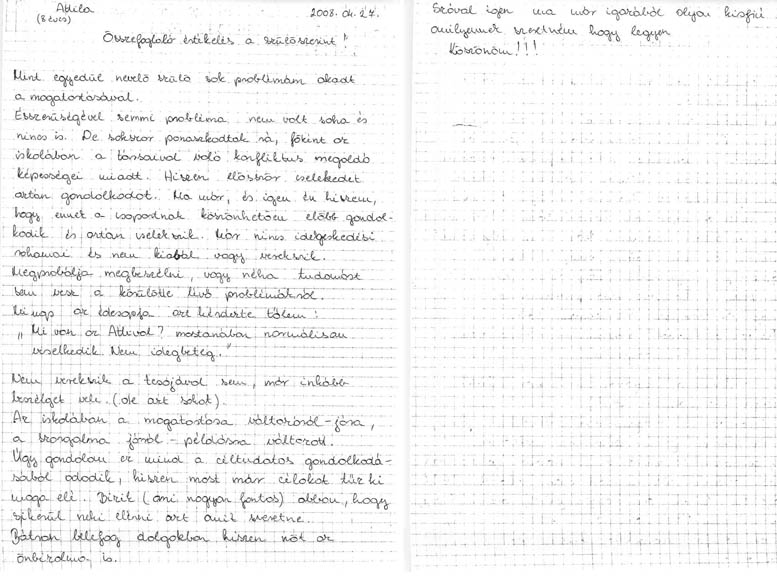 Attila
(8 éves)
2008. 04. 27.
Összefoglaló értékelés a szülő szerint!
Mint egyedül nevelő szülő sok problémám akadt
a magatartásával.
Ésszerűségével semmi probléma nem volt soha és
nincs is. De sokszor panaszkodtak rá, főként az
iskolában a társaival való konfliktus megoldó
képességei miatt. Hiszen először cselekedet
aztán gondolkodot. Ma már, és igen én hiszem,
hogy ennek a csoportnak köszönhetően előbb gondol-
kodik és aztán cselekszik. Már nincs idegeskedési
rohamai és nem kiabál vagy verekszik.
Megpróbálja megbeszélni, vagy néha tudomást
sem vesz a körülötte lévő problémákról.
Minap az édesapja azt kérdezte tőlem:
„Mi van az Attival? mostanában normálisan
viselkedik. Nem idegbeteg."
Nem verekszik a tesójával sem, már inkább
beszélget vele. (de azt sokat).
Az iskolában a magatartása változóról-jóra,
a szorgalma jóról - példásra változott.
Úgy gondolom ez mind a céltudatos gondolkodá-
sából adódik, hiszen most már célokat tűz ki
maga elé. Bízik (ami nagyon fontos) abban, hogy
sikerül neki elérni azt amit szeretne.
Bátran belefog dolgokban hiszen nőt az
önbizalma is.
Szóval igen ma már igazából olyan kisfiú
amilyennek szeretném hogy legyen
Köszönöm!!!